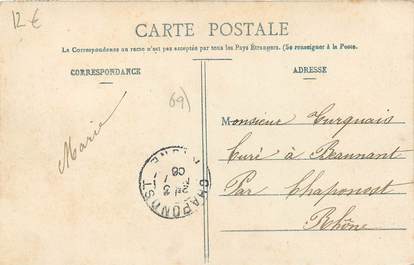 12 €
CARTE POSTALE
La Correspondance au recto n'est pas acceptée par tous les Pays Étrangers. (Se renseigner à la Poste.
CORRESPONDANCE
ADRESSE
69)
Marie
Monsieur Turquais
Curé à Beaunant
Par Chaponost
Rhône
CHAPONOST
3
08
RHONE